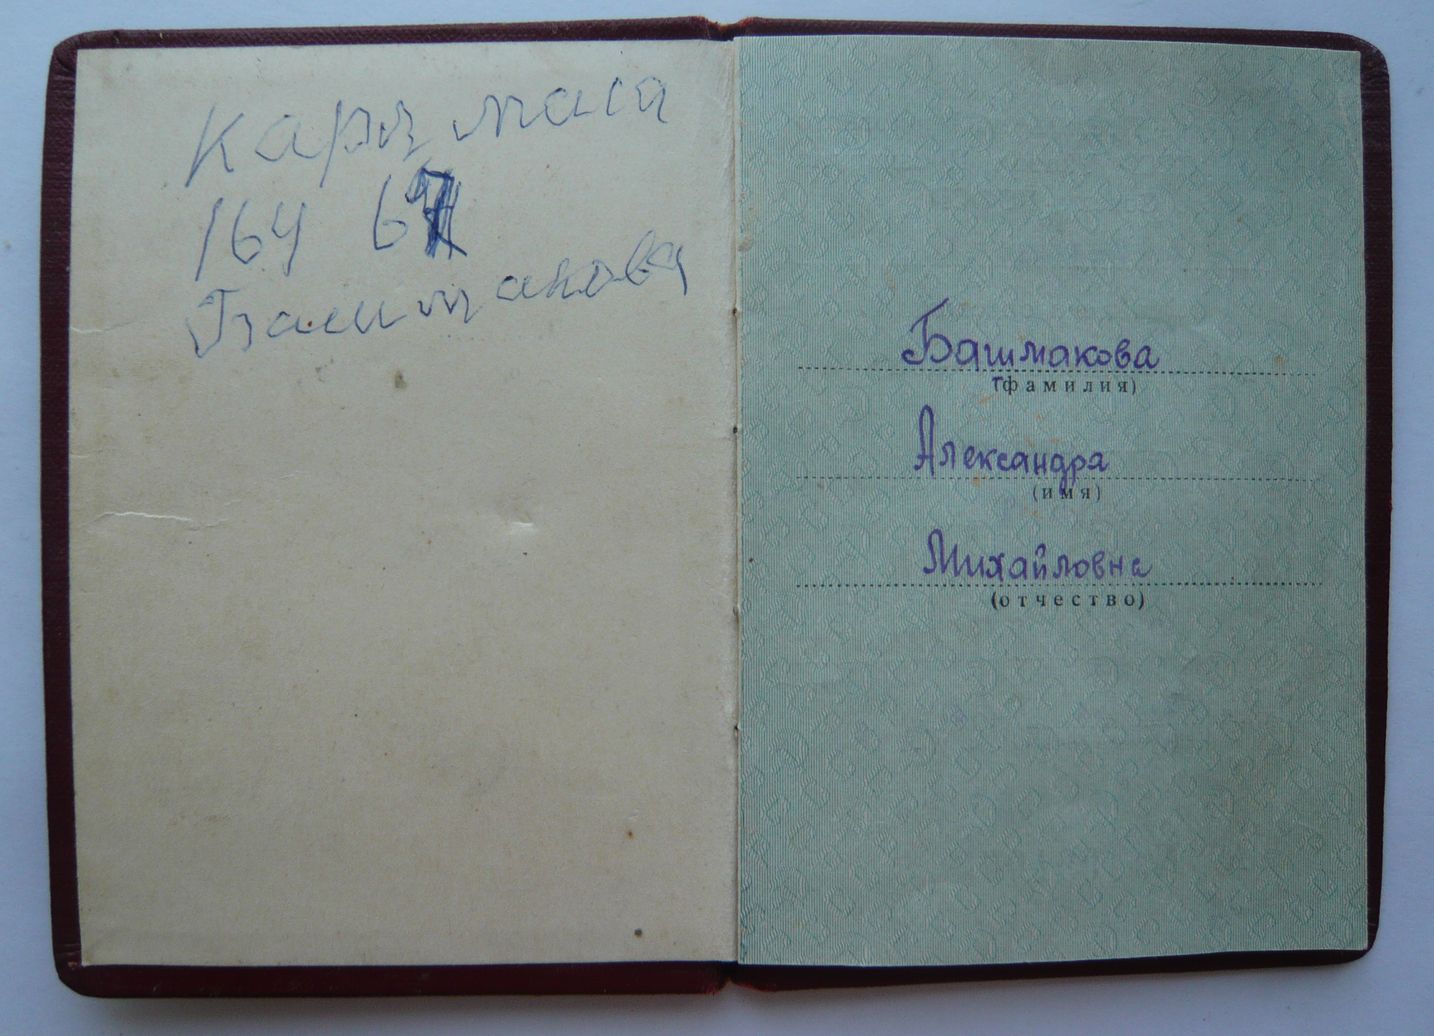 164 67
Башмакова
Башмакова
(фамилия)
Александра
(имя)
Михайловна
(отчество)